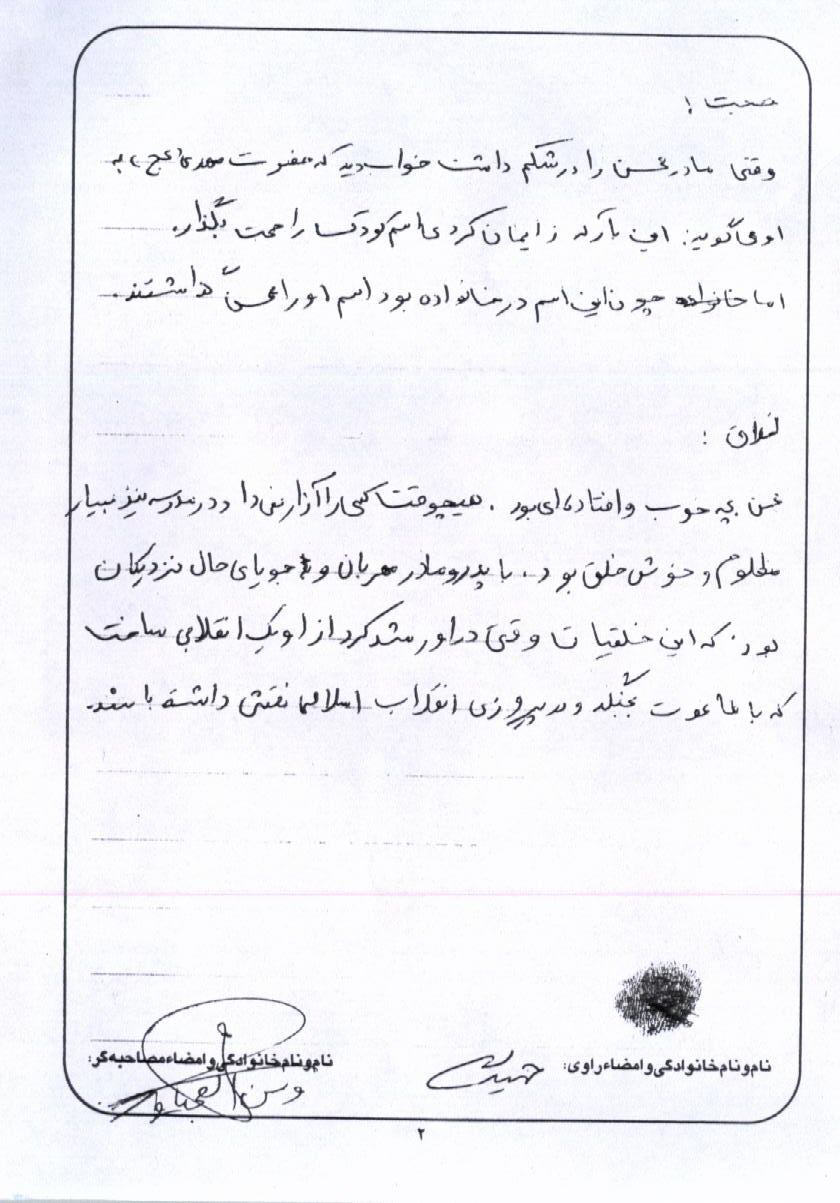 حجت :
وقتی مادر محسن را در شکم داشت خواب دید که حضرت مهدی (عج) به
او می گوید: این بار که زایمان کردی اسم کودکت را حجت بگذار.
اما خانواده چون این اسم در خانواده بود اسم او را محسن گذاشتند.
اخلاق :
محسن بچه خوب و افتاده ای بود . هیچوقت کسی را آزار نمی داد و در مدرسه نیز بسیار
مظلوم و خوش خلق بود . با پدر و مادر مهربان و جویای حال نزدیکان
بود . که این خلقیات وقتی در او رشد کرد از او یک انقلابی ساخت
که با طاغوت بجنگد و در پیروزی انقلاب اسلامی نقش داشته باشد
نام و نام خانوادگی و امضاء راوی:
نام و نام خانوادگی و امضاء مصاحبه گر:
۲